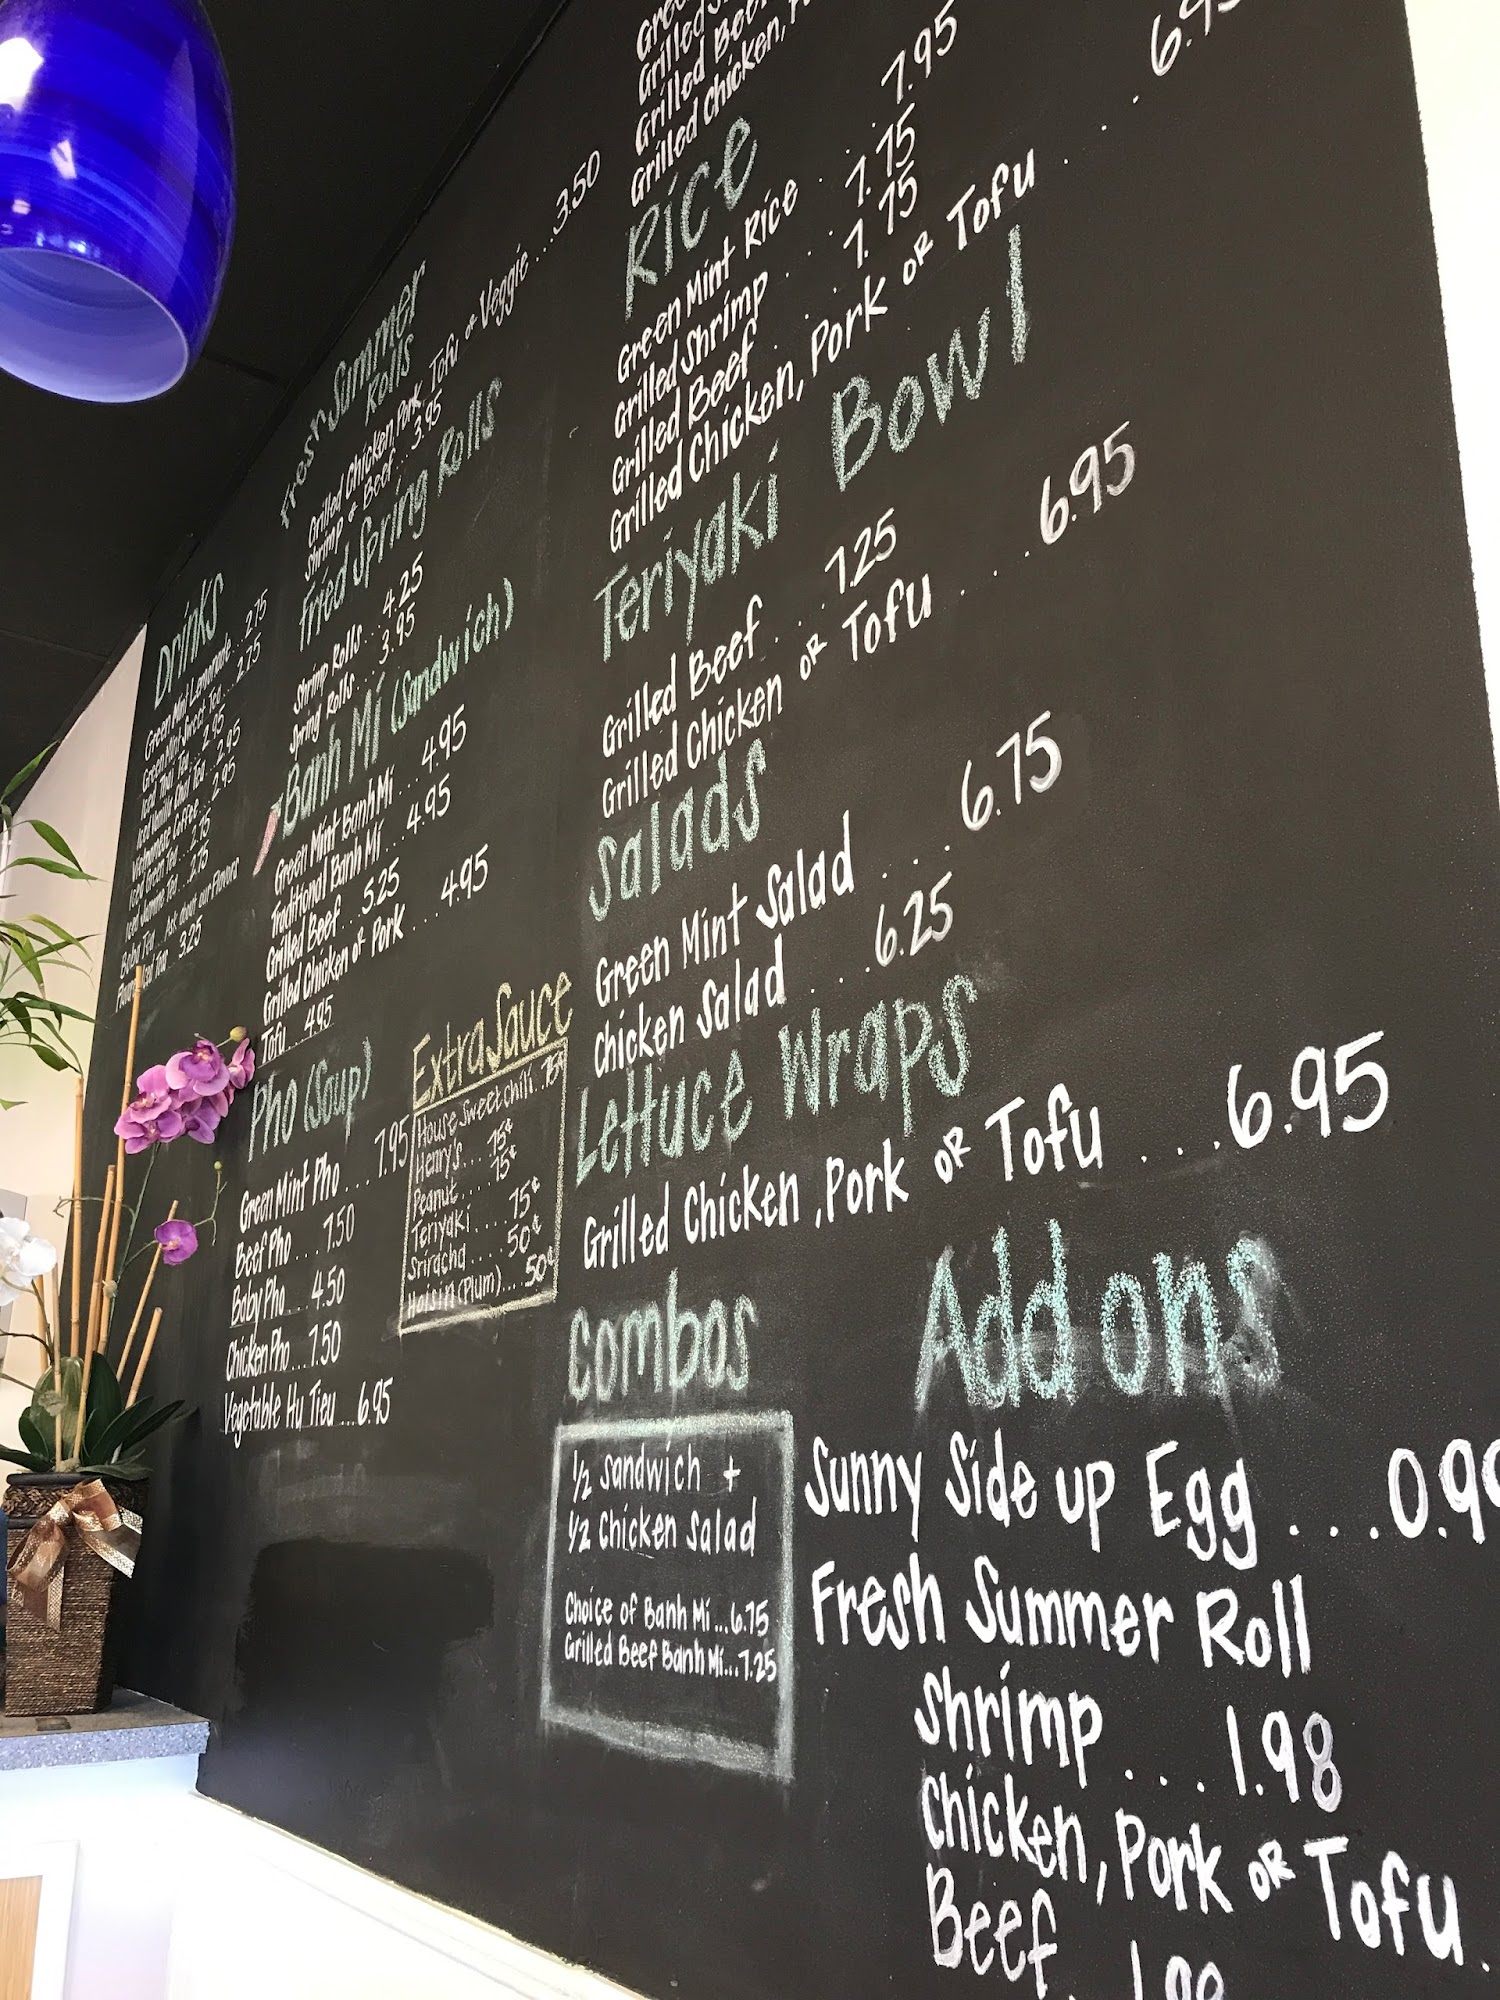 Drinks
Green Mint Lemonade...2.75
Green Mint Sweet Tea...2.75
Iced Thai Tea...2.95
Iced Vanilla Chai Tea...2.95
Vietnamese Coffee...2.95
Iced Green Tea...2.75
Iced Jasmine Tea...2.75
Boba Tea...Ask about our Flavors
Tea...3.25
Fresh Summer
Rolls
Grilled Chicken, Pork, Tofu, or Veggie...3.50
Shrimp or Beef...3.95
Fried Spring Rolls
Shrimp Rolls...4.25
Spring Rolls...3.95
Banh Mi (Sandwich)
Green Mint Banh Mi...4.95
Traditional Banh Mi...4.95
Grilled Beef...5.25
Grilled Chicken or Pork...4.95
Tofu...4.95
Pho (Soup)
Green Mint Pho...7.95
Beef Pho...7.50
Baby Pho...4.50
Chicken Pho...7.50
Vegetable Hu Tieu...6.95
Extra Sauce
House Sweet Chili..75¢
Henry's...75¢
Peanut....75¢
Teriyaki....75¢
Sriracha....50¢
Hoisin (Plum)...50¢
Grilled
Grilled
Grilled Chicken,
Rice
Green Mint Rice...7.95
Grilled Shrimp...7.75
Grilled Beef...7.75
Grilled Chicken, Pork or Tofu...
Teriyaki Bowl
Grilled Beef...7.25
Grilled Chicken or Tofu...6.95
Salads
Green Mint Salad...6.75
Chicken Salad...6.25
Lettuce Wraps
Grilled Chicken, Pork or Tofu...6.95
Combos
1/2 Sandwich +
1/2 Chicken Salad
Choice of Banh Mi...6.75
Grilled Beef Banh Mi...7.25
Add ons
Sunny Side up Egg...0.99
Fresh Summer Roll
Shrimp...1.98
Chicken, Pork or Tofu.
Beef